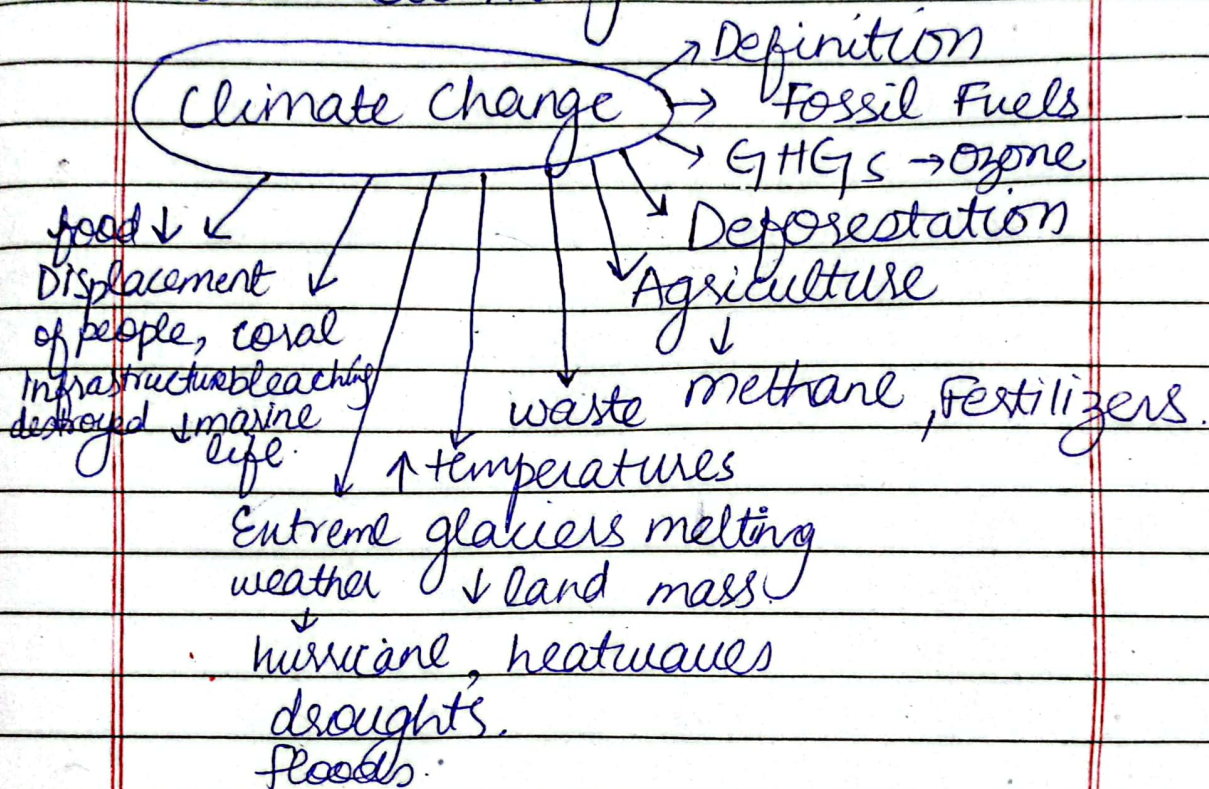 Climate Change
→ Definition
→ Fossil Fuels
→ GHGs → Ozone
Deforestation
Agriculture
↓
methane, Fertilizers.
waste
↑ temperatures
glaciers melting
↓ land mass.
Extreme
weather
↓
hurricane, heatwaves
droughts.
floods.
coral
bleaching
↓ marine
life.
food ↓
Displacement
of people,
infrastructure
destroyed